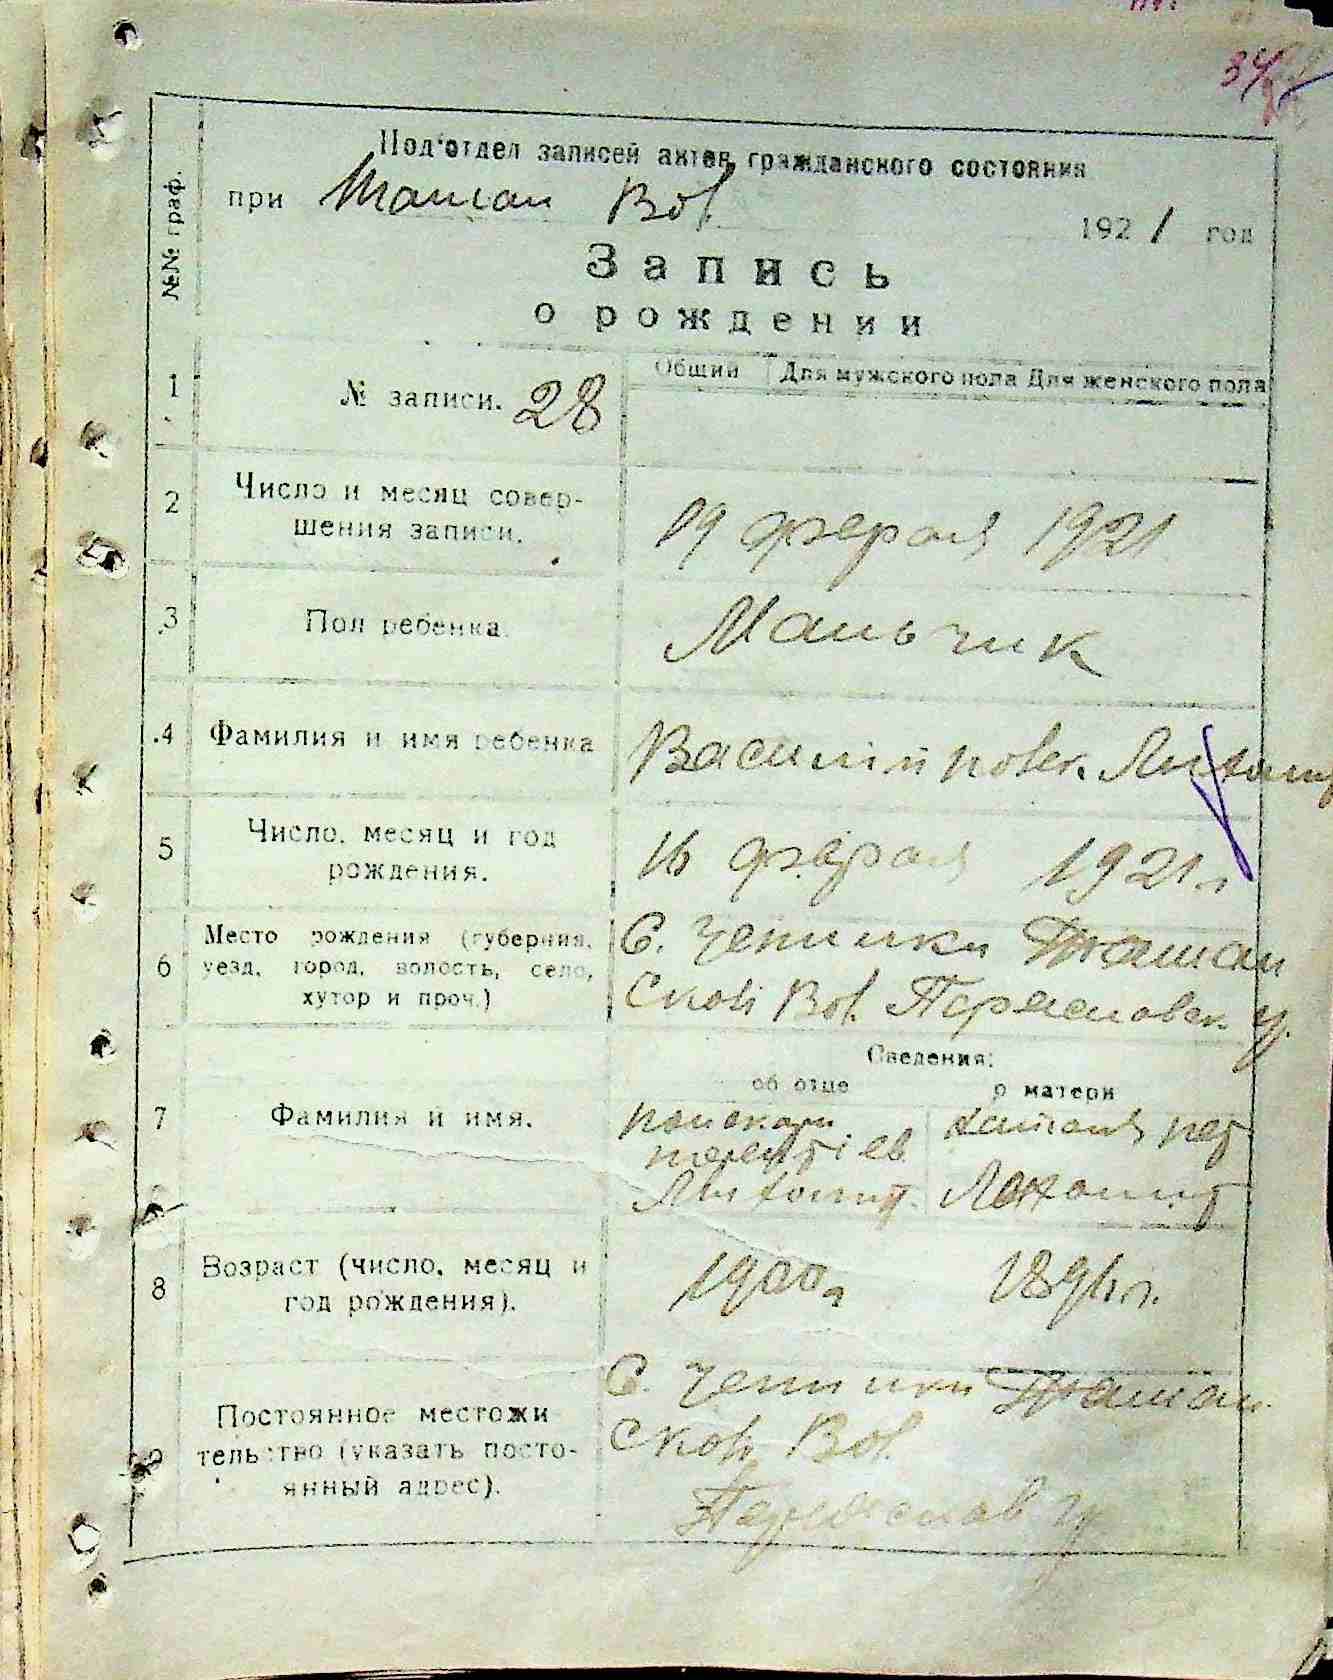 34
Под'отдел записей актов гражданского состояния
при Ташан Вол. 1921 год
№№ граф.
Запись
о рождении
1 № записи. 28 Общий Для мужского пола Для женского пола
2 Число и месяц совер-
шения записи. 19 февраля 1921
3 Пол ребенка. Мальчик
4 Фамилия и имя ребенка Василий
5 Число, месяц и год
рождения. 16 февраля 1921 г.
6 Место рождения (губерния,
уезд, город, волость, село,
хутор и проч.)
С. Чепилки Ташан
ской Вол. Переяславск. у.
Сведения:
об отце о матери
7 Фамилия и имя.
8 Возраст (число, месяц и
год рождения). 1900 г. 1896 г.
9 Постоянное местожи
тельство (указать посто-
янный адрес).
С. Чепилки Ташан.
ской Вол.
Переяслав у.